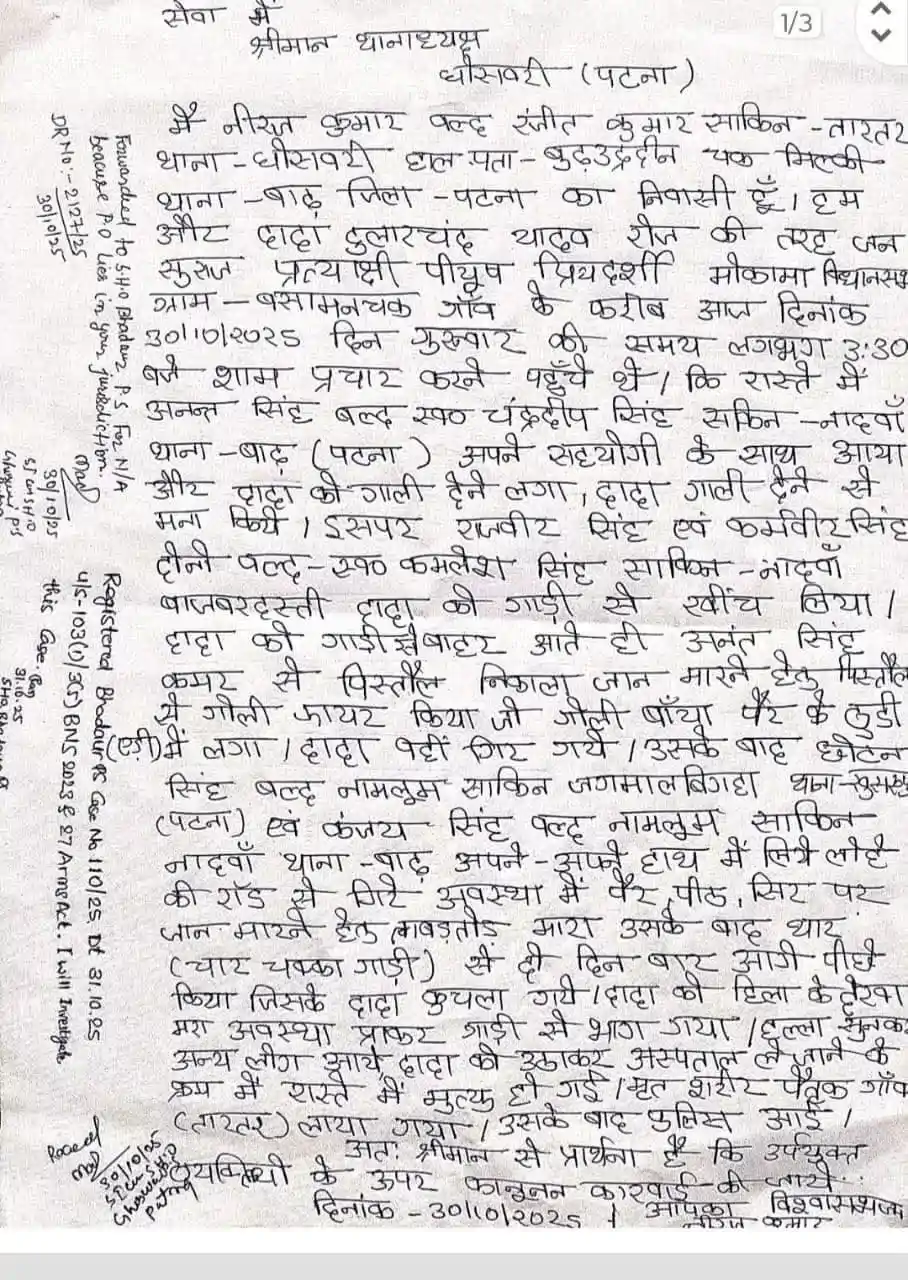 1/3
सेवा में
श्रीमान थानाध्यक्ष
घोसवरी (पटना)
मै नीरज कुमार वल्द रंजीत कुमार साकिन - तारतर
थाना - घोसवरी हाल पता - बुढ़उद्रदीन चक मिल्की-
थाना - बाढ़ जिला - पटना का निवासी हूँ। हम
और दादा दुलारचंद यादव रोज की तरह जन
सुराज प्रत्याक्षी पीयूष प्रियदर्शी मोकामा विधानसभा
ग्राम - बसामनचक गाँव के करीब आज दिनांक
30/10/2025 दिन गुरुवार की समय लगभग 3:30
बजे शाम प्रचार करने पहुँचे थे। कि रास्ते में
अनन्त सिंह बल्द स्व० चंद्रदीप सिंह सकिन - नादवाँ
थाना - बाढ़ (पटना) अपने सहयोगी के साथ आया
और दादा को गाली देने लगा, दादा गाली देने से
मना किये। इसपर राजवीर सिंह एवं कर्मवीर सिंह
दोनो वल्द - स्व० कमलेश सिंह साकिन - नादवाँ
बाजबरदस्ती दादा को गाड़ी से खींच लिया।
दादा को गाड़ी से बाहर आते ही अनंत सिंह
कमर से पिस्तौल निकाला जान मारने हेतु पिस्तौल
से गोली फायर किया जो गोली बाँया पैर के लुडी
(एड़ी) में लगा। दादा वहीं गिर गये। उसके बाद छोटन
सिंह बल्द नामलुम साकिन जगमालबिगहा थाना -
(पटना) एवं कंजय सिंह वल्द नामलुम साकिन
नादवाँ थाना - बाढ़ अपने - अपने हाथ में लिये लोहे
की रॉड से गिरे अवस्था में पैर, पीठ, सिर पर
जान मारने हेतु मारा उसके बाद थार
(चार चक्का गाड़ी) से दो दिन बार आगे पीछे
किया जिसके दादा कुचला गये। दादा को हिला के देखा
मरा अवस्था प्राकर गाड़ी से भाग गया। हल्ला सुनकर
अन्य लोग आये दादा को उठाकर अस्पताल ले जाने के
क्रम में रास्ते में मृत्यु हो गई। मृत शरीर पैतृक गाँव
(तारतर) लाया गया। उसके बाद पुलिस आई।
अतः श्रीमान से प्रार्थना है कि उर्पयुक्त
व्यक्तियो के ऊपर कानूनन कारवाई की जाये
दिनांक - 30/10/2025 । आपका विश्वासभाजन
नीरज कुमार
DR No :- 2127/25
30/10/25
Forwarded to S.H.O Bhadaur P.S. For N/A
beacuse P.O lies in your jurisdiction.
30/10/25
SI cum SHO
Registered Bhadaur PS Case No 110/25, Dt 31.10.25
u/s - 103(1)/3(5) BNS 2023 & 27 Arms Act. I will Investigate
this case.
31.10.25
30/10/25
SI cum SHO
Ghoswari P.S
Patna